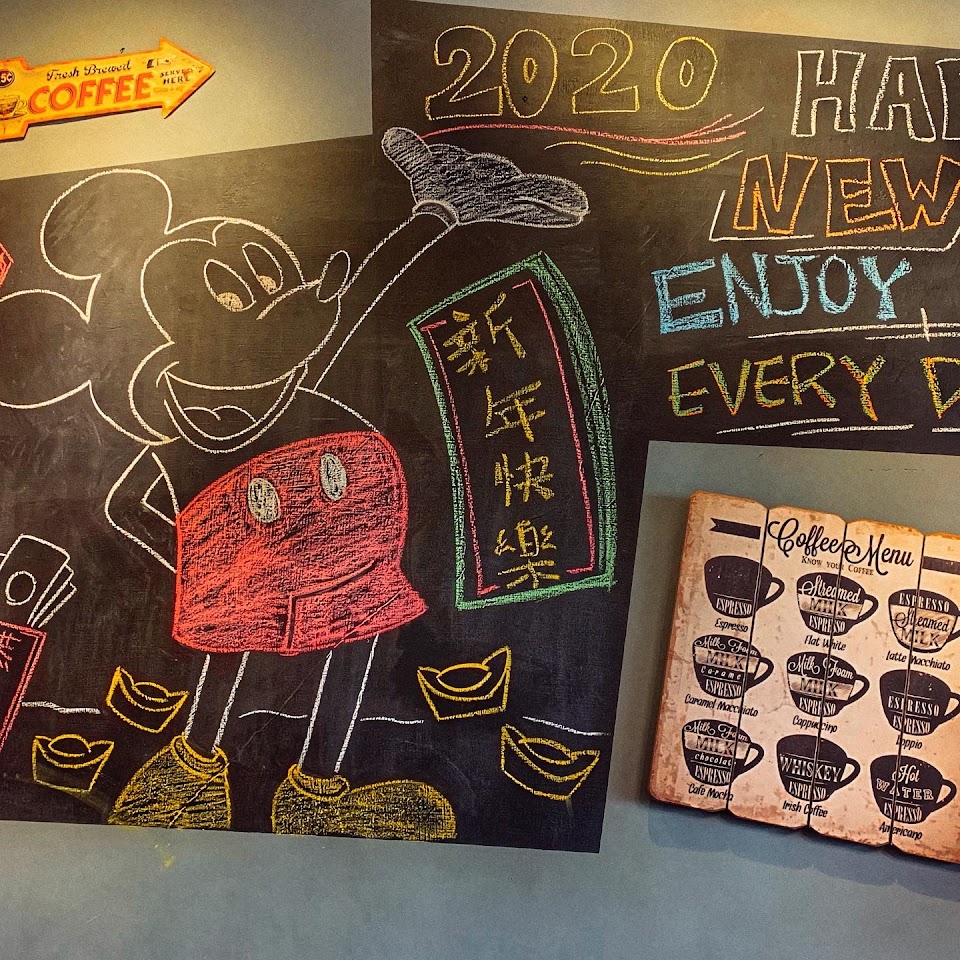 5¢
Fresh Brewed
COFFEE
SERVED
HERE
2020
HAP
NEW
ENJOY
EVERY D
新年快樂
Coffee Menu
KNOW YOUR COFFEE
ESPRESSO
Espresso
Steamed
MILK
ESPRESSO
Flat White
ESPRESSO
Steamed
MILK
Latte Macchiato
Milk Foam
MILK
Caramel
ESPRESSO
Caramel Macchiato
Milk Foam
MILK
ESPRESSO
Cappuccino
ESPRESSO
ESPRESSO
Doppio
Milk Foam
MILK
chocolate
ESPRESSO
Cafe Mocha
WHISKEY
ESPRESSO
Irish Coffee
Hot
WATER
ESPRESSO
Americano